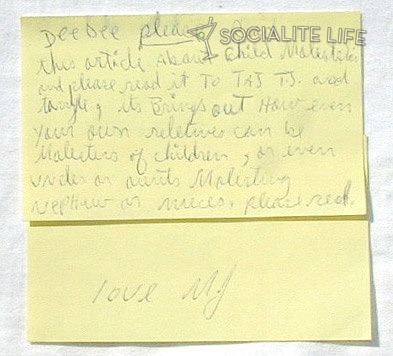 SOCIALITE LIFE
Dee Dee please
this article About Child Molesters
and please read it To TAJ TJ. and
its Brings out How even
your own reletives can be
Molesters of children, or even
uncles or aunts Molesting
nephew or nieces. please read.
love MJ